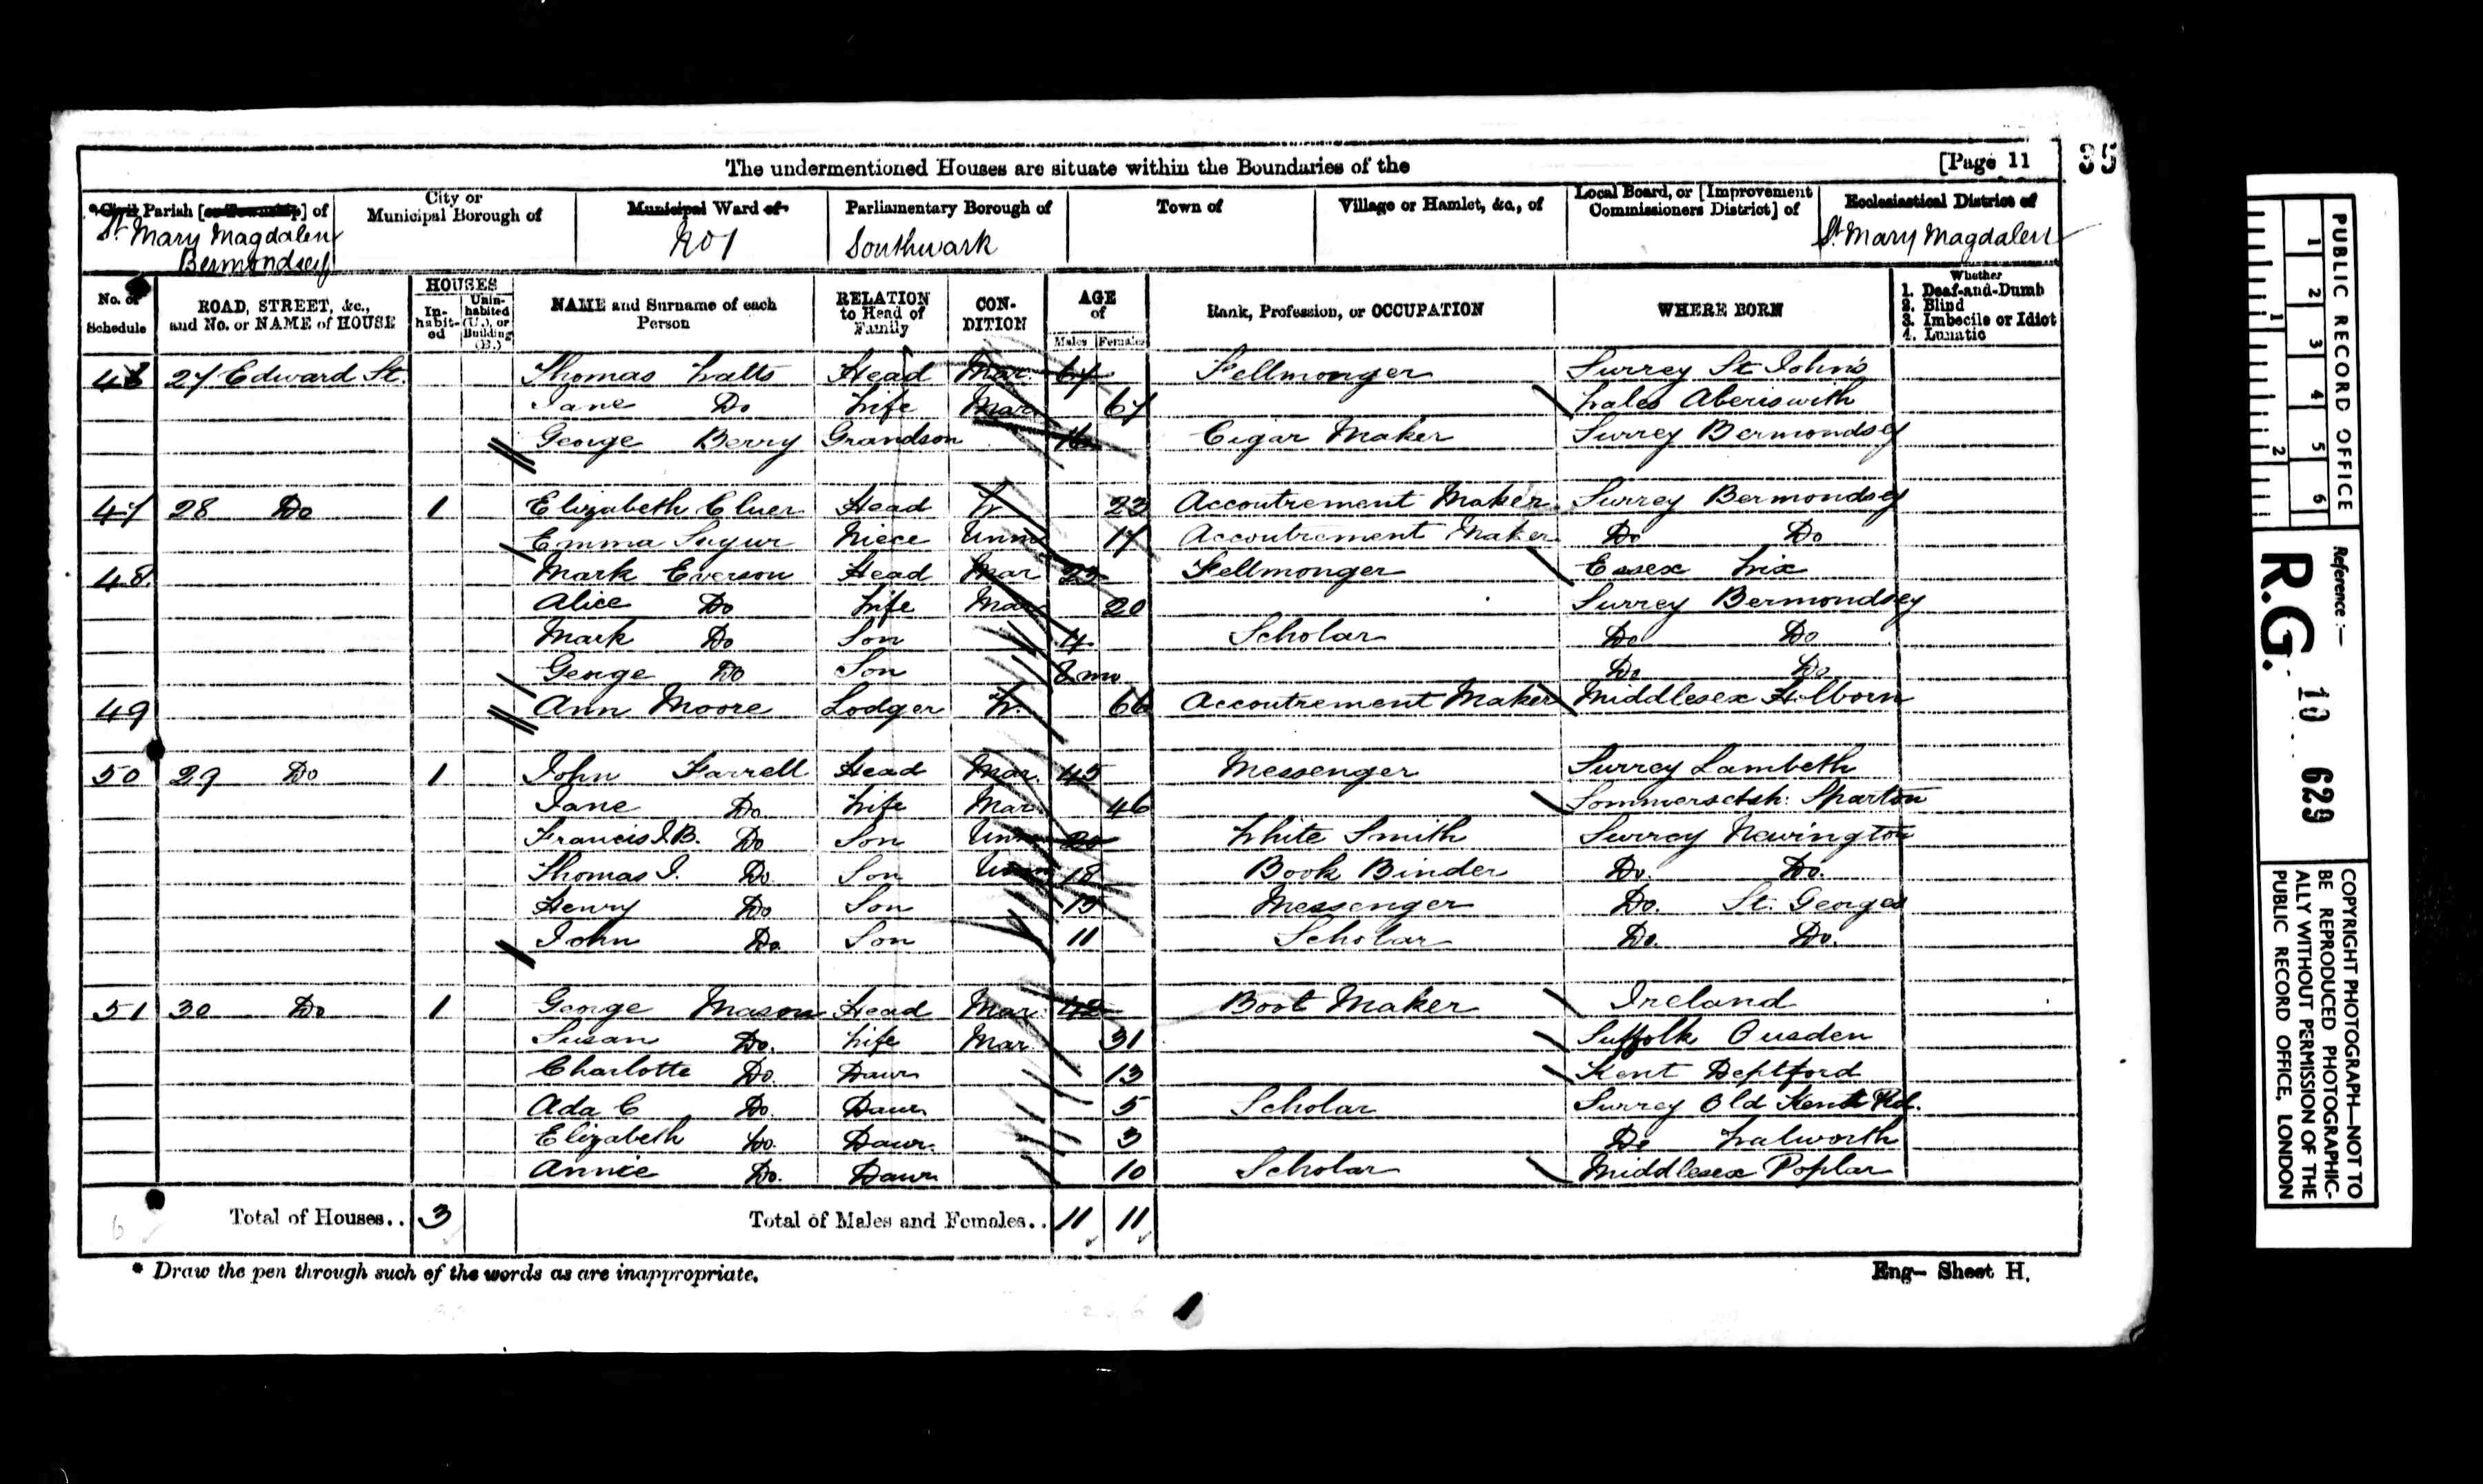 The undermentioned Houses are situate within the Boundaries of the [Page 11 ] 35
*Civil Parish [or Township] of City or Municipal Borough of Municipal Ward of Parliamentary Borough of Town of Village or Hamlet, &c., of Local Board, or [Improvement Commissioners District] of Ecclesiastical District of
St Mary Magdalen Bermondsey No 1 Southwark St Mary Magdalen
No. of Schedule ROAD, STREET, &c., and No. or NAME of HOUSE HOUSES In-habit-ed Unin-habited (U.), or Building (B.) NAME and Surname of each Person RELATION to Head of Family CON-DITION AGE of Males Females Rank, Profession, or OCCUPATION WHERE BORN Whether 1. Deaf-and-Dumb 2. Blind 3. Imbecile or Idiot 4. Lunatic
46 27 Edward St. Thomas Watts Head Mar 67 Fellmonger Surrey St John's
Jane Do Wife Mar 67 Wales Aberiswith
George Berry Grandson 16 Cigar Maker Surrey Bermondsey
47 28 Do 1 Elizabeth Cluer Head W 23 Accoutrement Maker Surrey Bermondsey
Emma Head Niece Unm 17 Accoutrement Maker Do Do
48 Mark Everson Head Mar Fellmonger Essex Wix
Alice Do Wife Mar 20 Surrey Bermondsey
Mark Do Son 4 Scholar Do Do
George Do Son Do Do
49 Ann Moore Lodger W. 66 Accoutrement Maker Middlesex Holborn
50 29 Do 1 John Farrell Head Mar. 45 Messenger Surrey Lambeth
Jane Do Wife Mar 46 Sommersetsh:
Francis J.B. Do Son Unm 20 White Smith Surrey Newington
Thomas J. Do Son Unm 18 Book Binder Do. Do.
Henry Do Son Messenger Do. St. Georges
John Do Son 11 Scholar Do. Do.
51 30 Do 1 George Mason Head Mar 42 Boot Maker Ireland
Susan Do. Wife Mar 31 Suffolk Ousden
Charlotte Do. Daur 13 Kent Deptford
Ada C Do. Daur 5 Scholar Surrey Old Kent Rd.
Elizabeth Do. Daur. 3 Do Walworth
Annie Do. Daur 10 Scholar Middlesex Poplar
Total of Houses.. 3 Total of Males and Females.. 11 11
* Draw the pen through such of the words as are inappropriate. Eng— Sheet H.
PUBLIC RECORD OFFICE
1 2 3 4 5 6
1 2
Reference:—
R.G. 10 629
COPYRIGHT PHOTOGRAPH—NOT TO BE REPRODUCED PHOTOGRAPHIC-ALLY WITHOUT PERMISSION OF THE PUBLIC RECORD OFFICE, LONDON